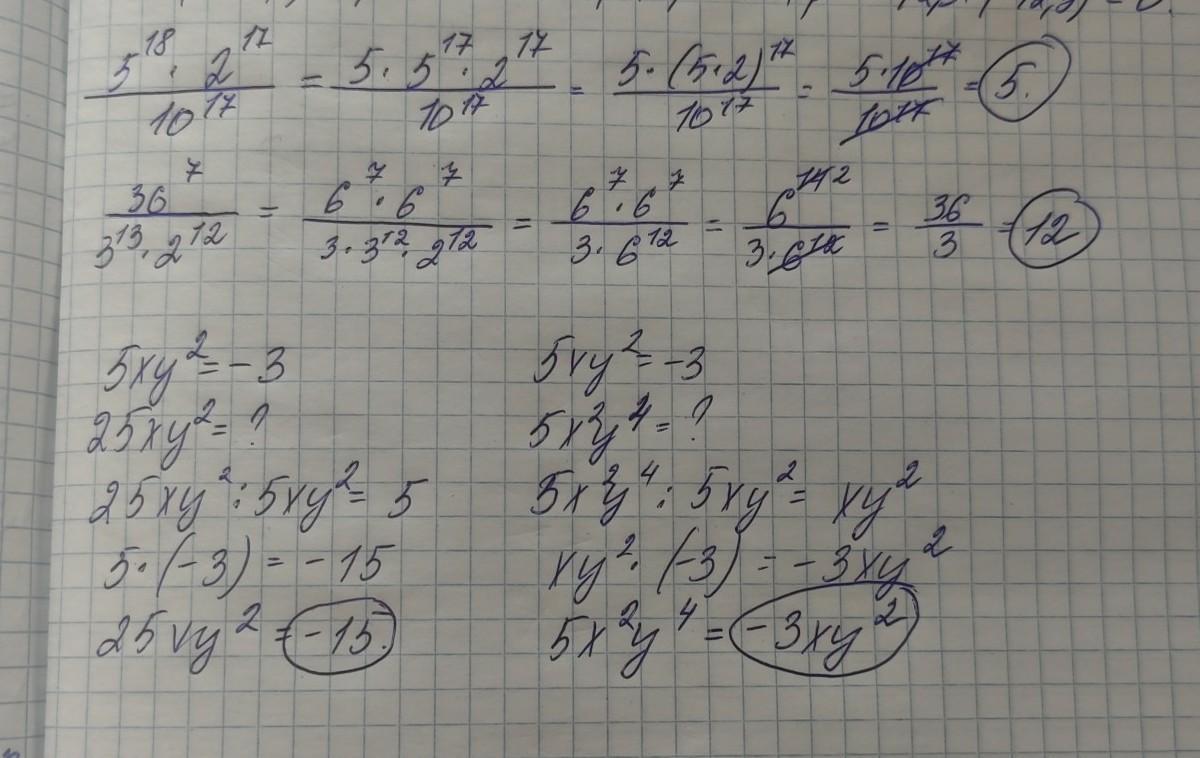 5^18 · 2^17 / 10^17 = 5 · 5^17 · 2^17 / 10^17 = 5 · (5 · 2)^17 / 10^17 = 5 · 10^17 / 10^17 = 5.
36^7 / 3^13 · 2^12 = 6^7 · 6^7 / 3 · 3^12 · 2^12 = 6^7 · 6^7 / 3 · 6^12 = 6^14 2 / 3 · 6^12 = 36 / 3 = 12
5xy^2 = -3
25xy^2 = ?
25xy^2 : 5xy^2 = 5
5 · (-3) = -15
25xy^2 = -15.
5xy^2 = -3
5x^2y^4 = ?
5x^2y^4 : 5xy^2 = xy^2
xy^2 · (-3) = -3xy^2
5x^2y^4 = -3xy^2